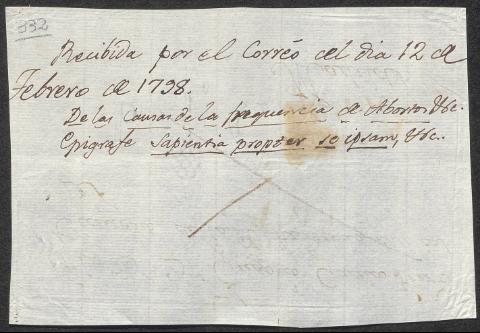 332
Recibida por el Correo del dia 12 de
Febrero de 1798.
De las Causas de la frequencia de Abortos &c.
Epigrafe Sapientia propter se ipsam, &c.